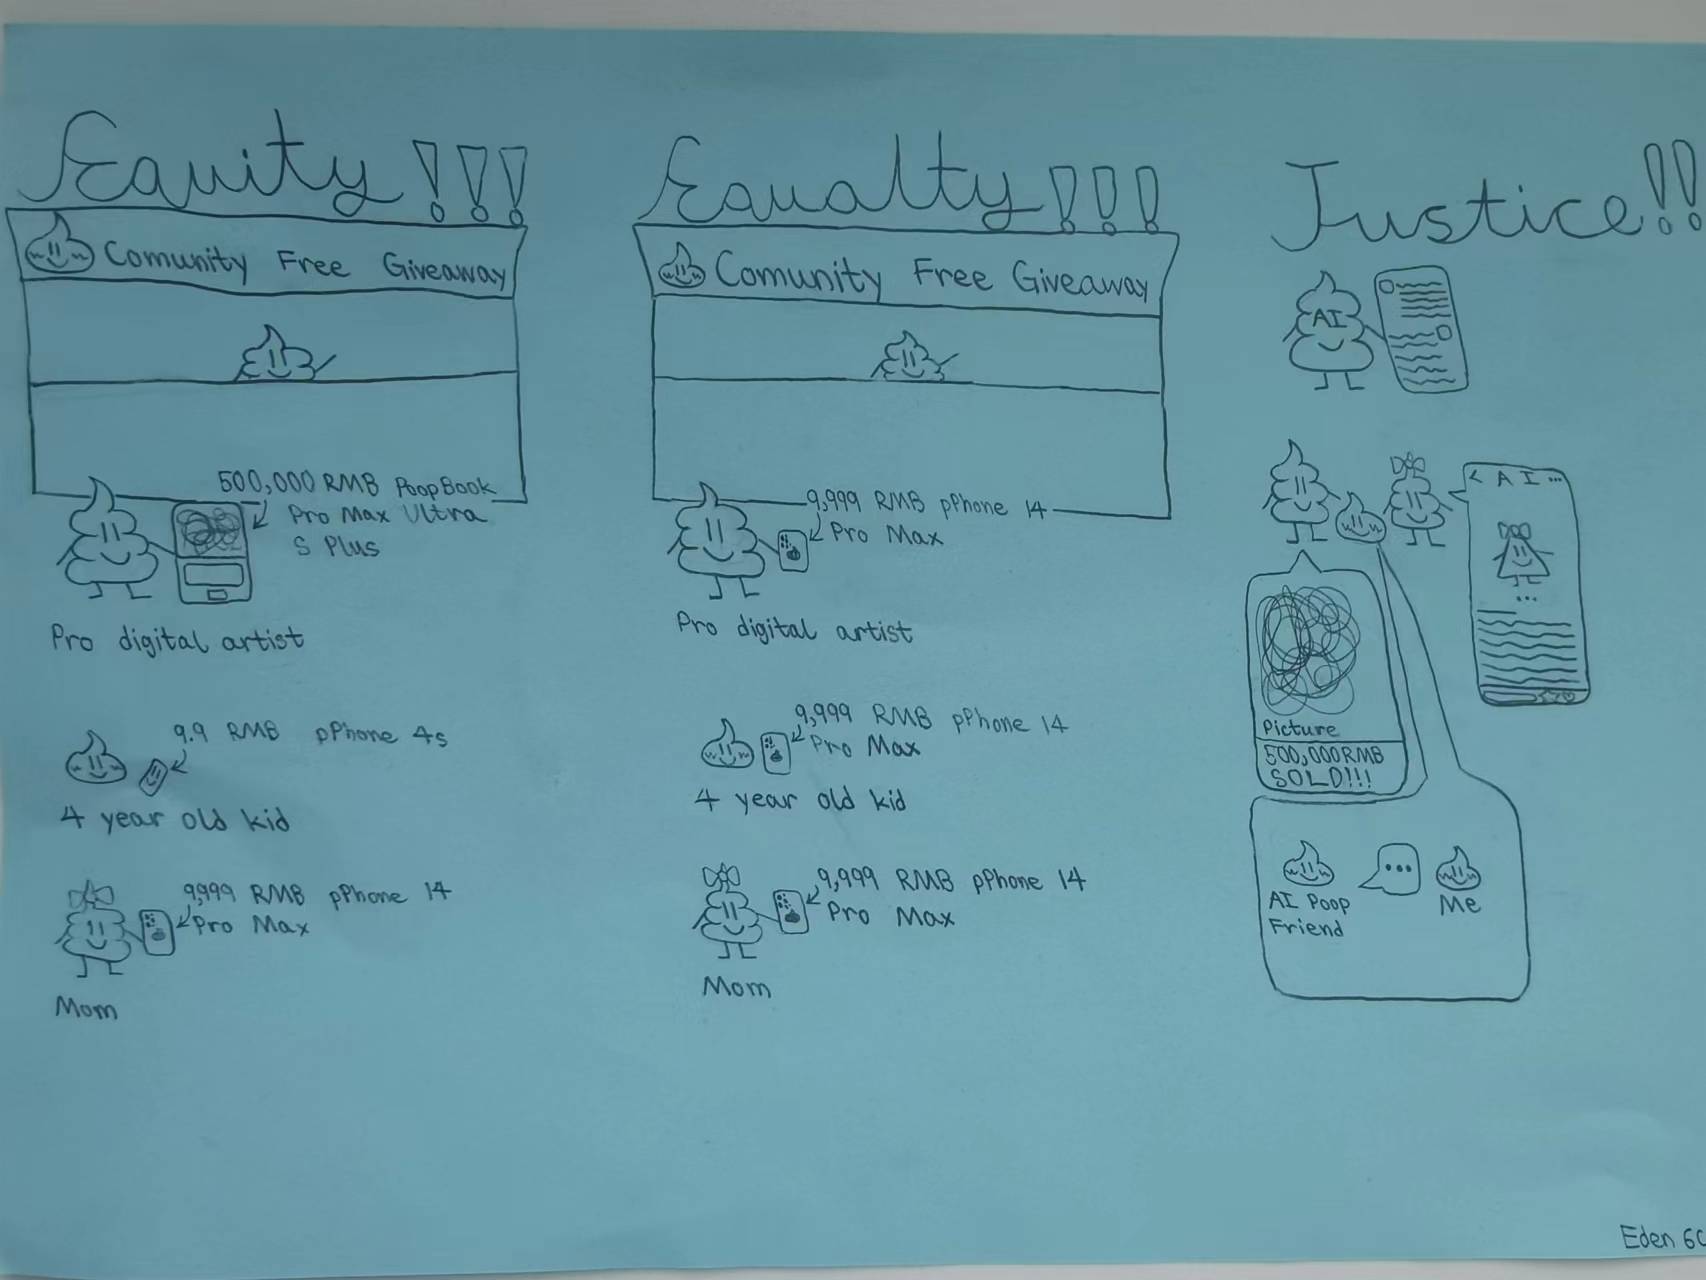 Equity!!!
Comunity Free Giveaway
500,000 RMB PoopBook
Pro Max Ultra
S Plus
Pro digital artist
9.9 RMB pPhone 4s
4 year old kid
9,999 RMB pPhone 14
Pro Max
Mom
Equalty!!!
Comunity Free Giveaway
9,999 RMB pPhone 14
Pro Max
Pro digital artist
9,999 RMB pPhone 14
Pro Max
4 year old kid
9,999 RMB pPhone 14
Pro Max
Mom
Justice!!
AI
< AI ...
...
Picture
500,000RMB
SOLD!!!
...
AI Poop
Friend
Me
Eden 6C